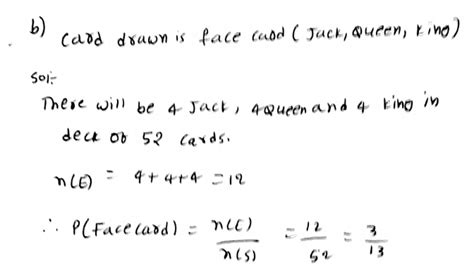 b) Card drawn is face card (Jack, Queen, King)
Sol:-
There will be 4 Jack, 4 Queen and 4 King in
deck of 52 cards.
n(E) = 4+4+4 = 12
∴ P(Face card) = n(E)/n(S) = 12/52 = 3/13